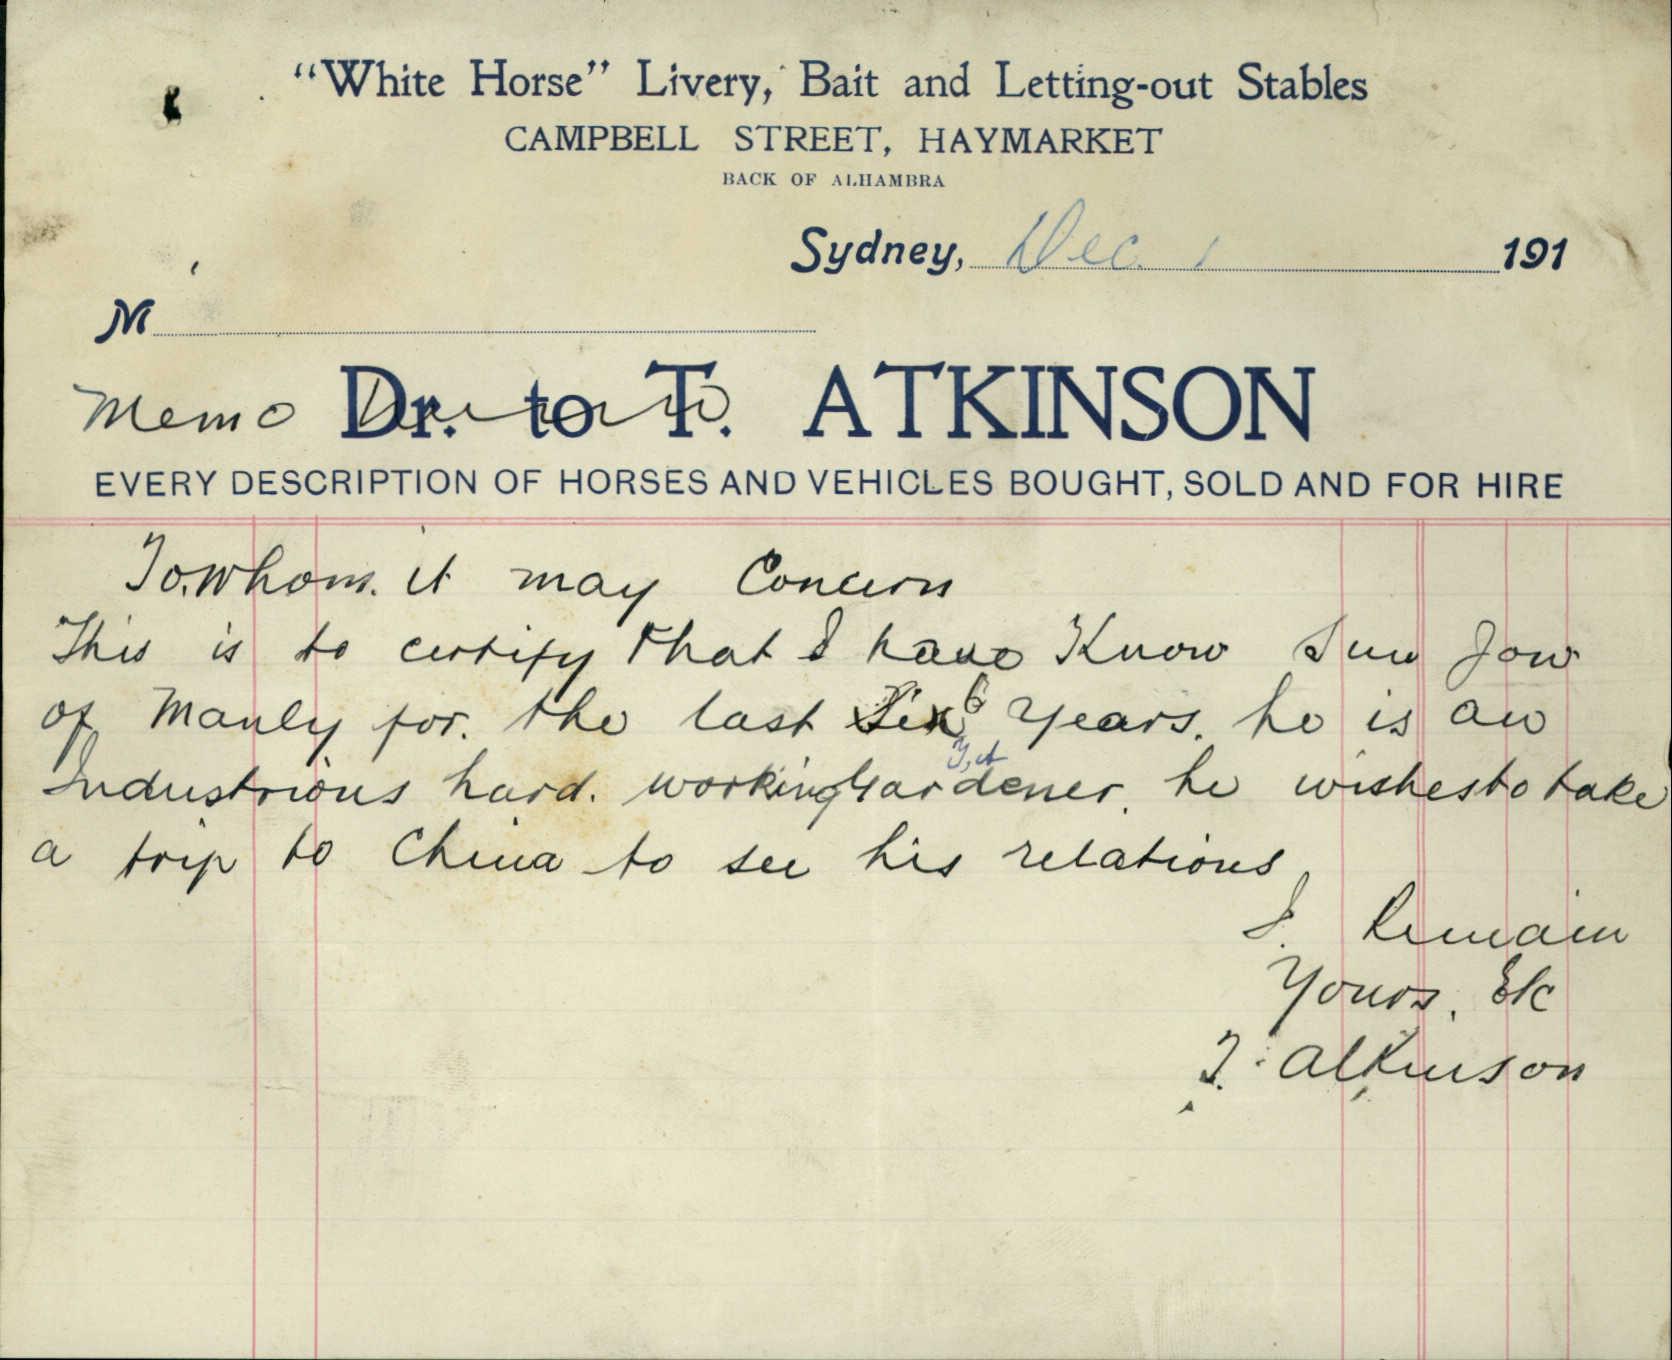 “White Horse” Livery, Bait and Letting-out Stables
CAMPBELL STREET, HAYMARKET
BACK OF ALHAMBRA
Sydney, Dec. 1 191
M
Memo Dr. to T. ATKINSON
EVERY DESCRIPTION OF HORSES AND VEHICLES BOUGHT, SOLD AND FOR HIRE
To. Whom. it may Concern
This is to certify that I have Know Sun Jow
of Manly for. the last Six 6 years. he is an
Industrious hard. working Gardener. he wishes to take
a trip to China to see his relations
I. Remain
Yours, Etc
T. Atkinson